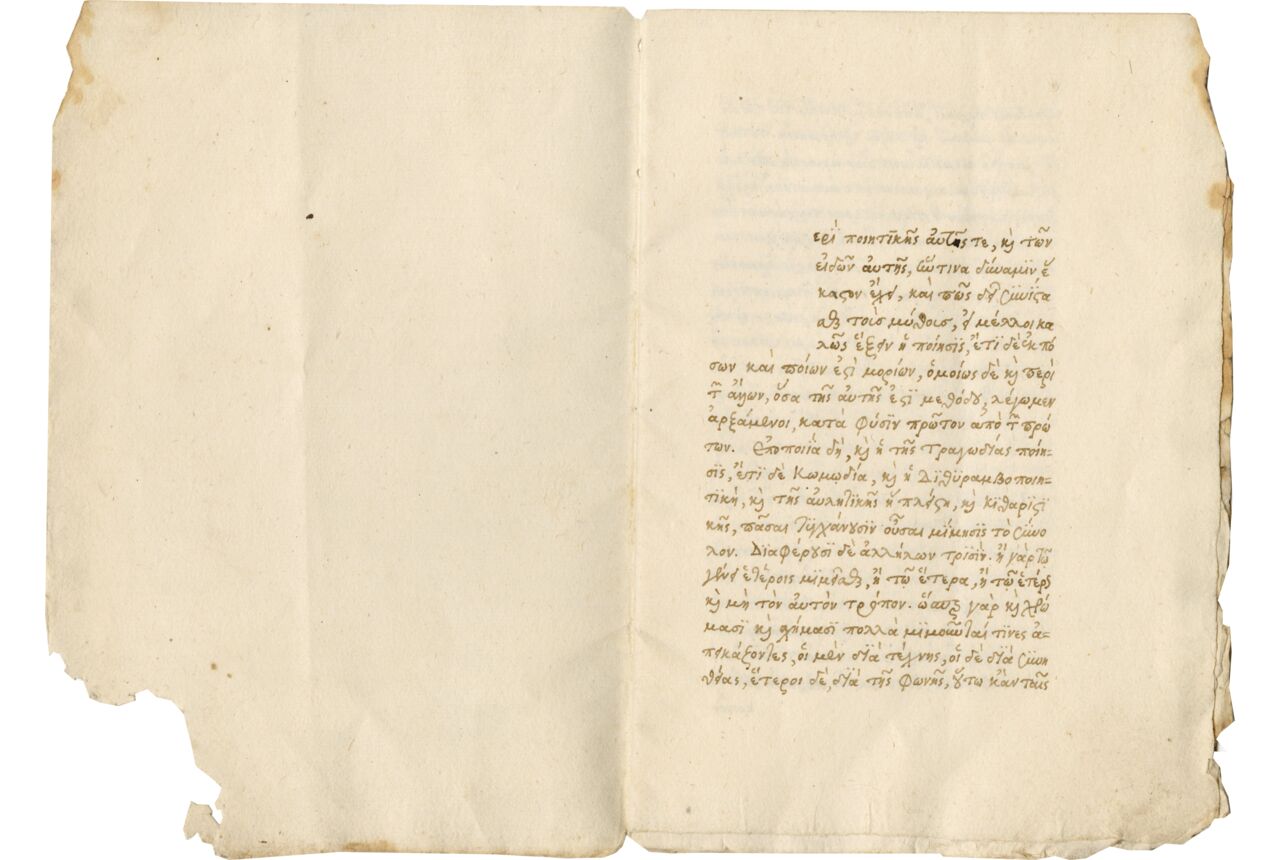 ερὶ ποιητικῆς αὐτῆς τε, κὶ τῶν
εἰδῶν αὐτῆς, ἥντινα δύναμιν ἕ
καστον ἔχει, καὶ πῶς δεῖ συνίστα
σθαι τοὺς μύθους, εἰ μέλλοι κα
λῶς ἕξειν ἡ ποίησις, ἔτι δὲ ἐκ πό
σων καὶ ποίων ἐστὶ μορίων, ὁμοίως δὲ κὶ περὶ
τῶν ἄλλων, ὅσα τῆς αὐτῆς ἐστι μεθόδου, λέγωμεν
ἀρξάμενοι, κατὰ φύσιν πρῶτον ἀπὸ τῶν πρώ
των. Ἐποποιΐα δὴ, κὶ ἡ τῆς Τραγωδίας ποίη-
σις, ἔτι δὲ Κωμῳδία, κὶ ἡ Διθυραμβοποιη-
τικὴ, κὶ τῆς αὐλητικῆς ἡ πλείστη, κὶ κιθαριστι
κῆς, πᾶσαι τυγχάνουσιν οὖσαι μίμησις τὸ σύνο
λον. Διαφέρουσι δὲ ἀλλήλων τρισίν. ἢ γὰρ τῷ
γένει ἑτέροις μιμεῖσθαι, ἢ τῷ ἕτερα, ἢ τῷ ἑτέρως
κὶ μὴ τὸν αὐτὸν τρόπον. ὥσπερ γὰρ κὶ χρώ
μασι κὶ σχήμασι πολλὰ μιμοῦνταί τινες ἀ-
πεικάζοντες, οἱ μὲν διὰ τέχνης, οἱ δὲ διὰ συνη
θείας, ἕτεροι δὲ, διὰ τῆς φωνῆς, οὕτω κἀν ταῖς